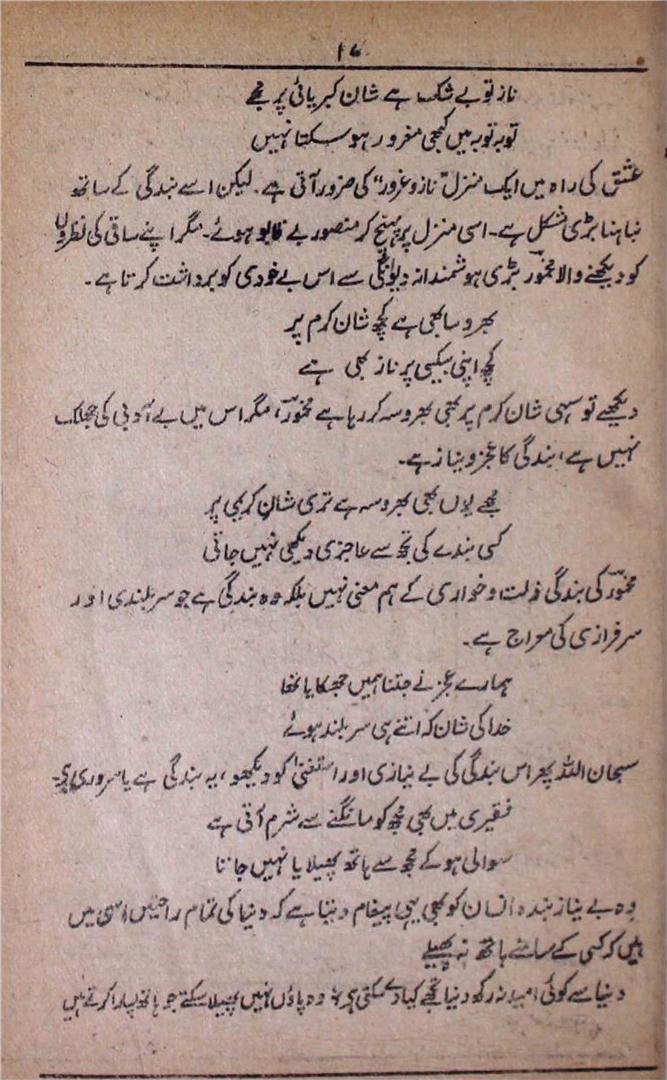 ۱۷
ناز تو بے شک ہے شان کبریائی پر مجھے
توبہ توبہ میں کبھی مغرور ہو سکتا نہیں
عشق کی راہ میں ایک منزل "ناز و غرور" کی ضرور آتی ہے۔ لیکن اسے بندگی کے ساتھ
نباہنا بڑی مشکل ہے۔ اسی منزل پر پہنچ کر منصور بے قابو ہوئے۔ مگر اپنے ساقی کی نظروں
کو دیکھنے والا مخمورؔ بڑی ہوشمندانہ دیوانگی سے اس بے خودی کو برداشت کرتا ہے۔
بھروسا بھی ہے کچھ شان کرم پر
کچھ اپنی بیکسی پر ناز بھی ہے
دیکھیے تو سہی شان کرم پر بھی بھروسہ کر رہا ہے مخمورؔ، مگر اس میں بے ادبی کی جھلک
نہیں ہے، بندگی کا عجز و نیاز ہے۔
مجھے یوں بھی بھروسہ ہے تری شانِ کریمی پر
کسی بندے کی تجھ سے عاجزی دیکھی نہیں جاتی
مخمورؔ کی بندگی ذلت و خواری کے ہم معنی نہیں بلکہ وہ بندگی ہے جو سربلندی اور
سرفرازی کی معراج ہے۔
ہمارے عجز نے جتنا ہمیں جھکایا تھا
خدا کی شان کہ اتنے ہی سربلند ہوئے
سبحان اللہ پھر اس بندگی کی بے نیازی اور استغنیٰ کو دیکھو، یہ بندگی ہے یا سروری ہے۔
فقیری میں بھی مجھ کو مانگنے سے شرم آتی ہے
سوالی ہو کے مجھ سے ہاتھ پھیلایا نہیں جاتا
وہ بے نیاز بندہ انسان کو بھی یہی پیغام دیتا ہے کہ دنیا کی تمام راحتیں اسی میں
ہیں کہ کسی کے سامنے ہاتھ نہ پھیلے
دنیا سے کوئی امید نہ رکھ دنیا تجھے کیا دے سکتی ہے وہ پاؤں نہیں پھیلا سکتے جو ہاتھ پسارا کرتے ہیں